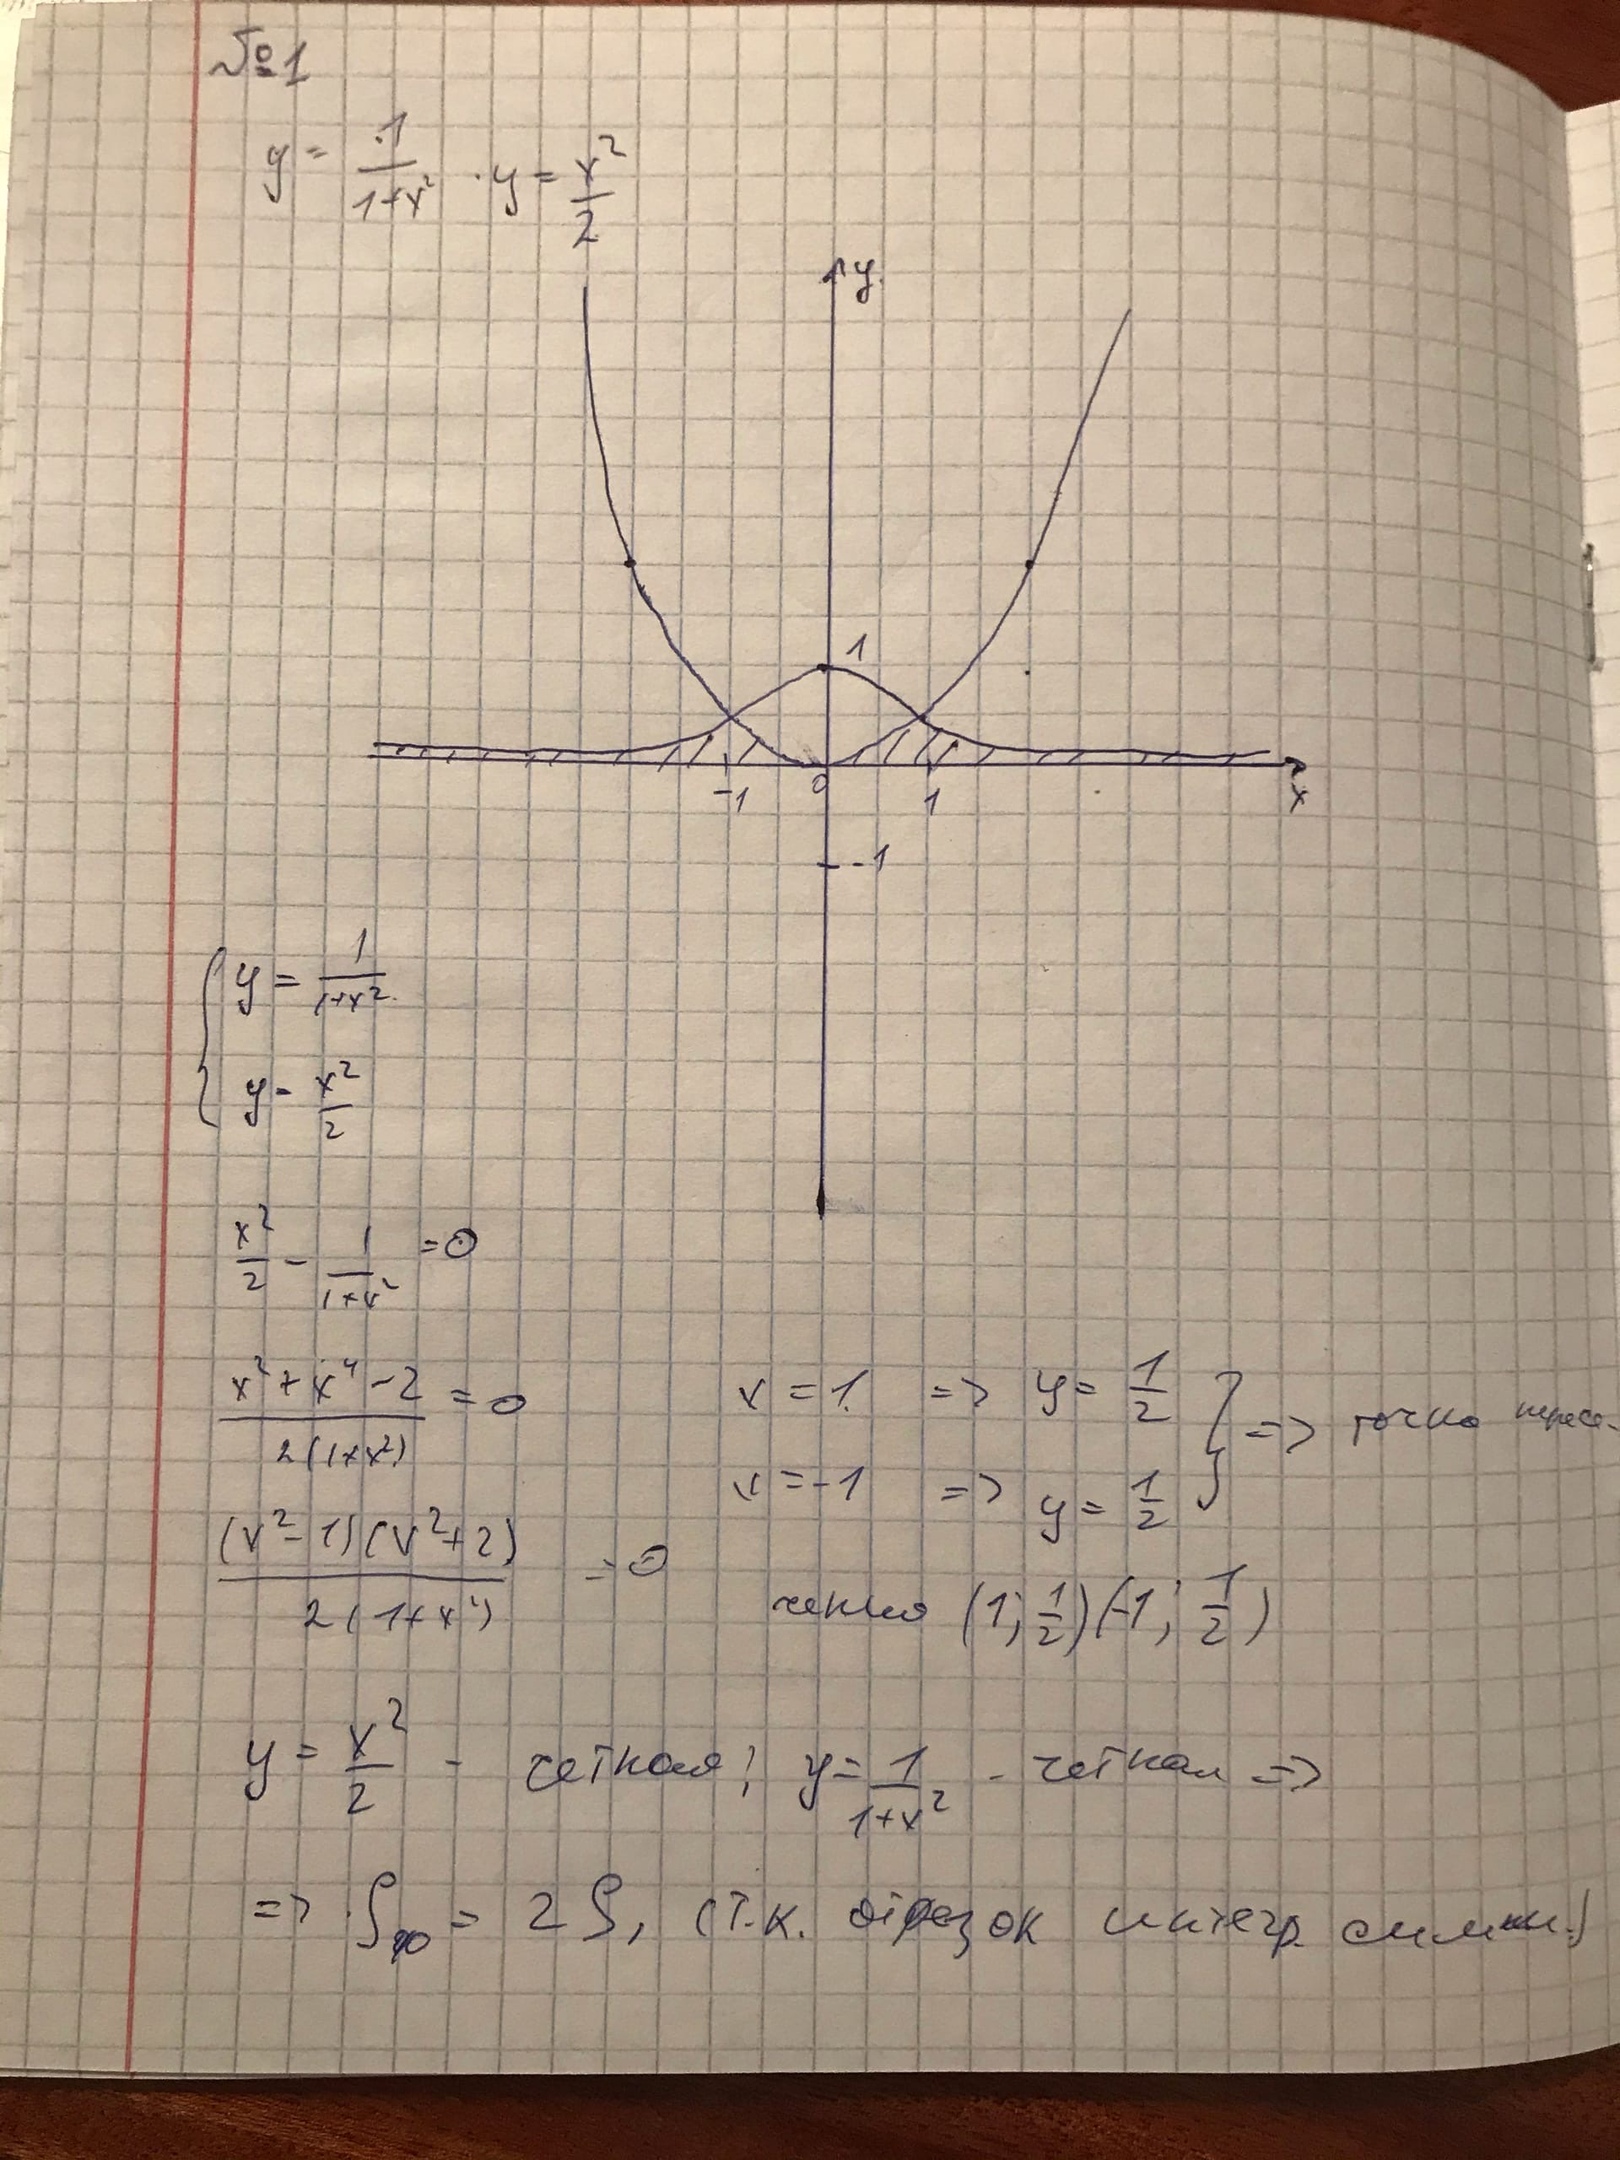 №1
y = 1/(1+x²) · y = x²/2
y
1
-1 0 1 x
-1
{ y = 1/(1+x²)
y = x²/2
x²/2 - 1/(1+x²) = 0
(x² + x⁴ - 2)/(2(1+x²)) = 0
(x² - 1)(x² + 2)/(2(1+x²)) = 0
x = 1 => y = 1/2
x = -1 => y = 1/2 } => точки пересе-
чения (1; 1/2) (-1; 1/2)
y = x²/2 - четная; y = 1/(1+x²) - четная =>
=> S = 2 S, (т.к. отрезок интегр. симм.)